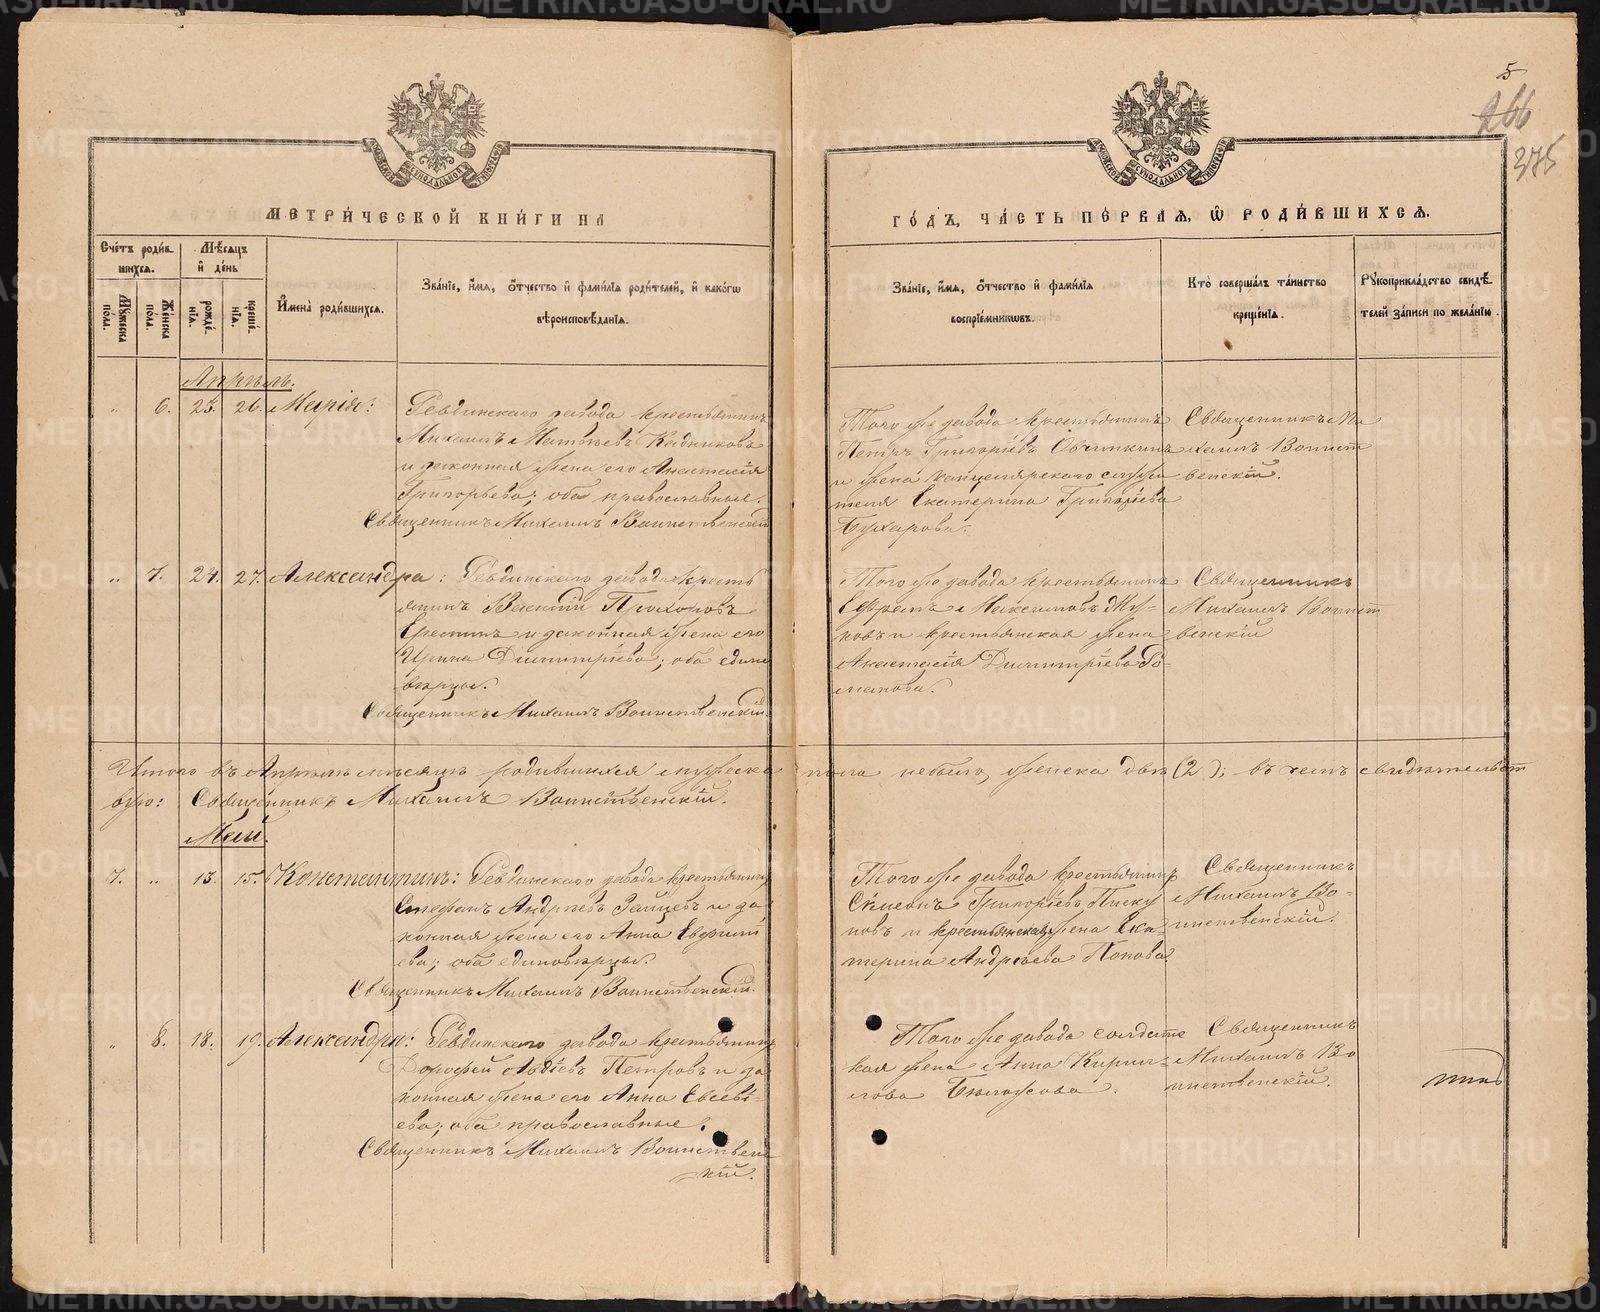 5
266
375
МЕТРИ́ЧЕСКОЙ КНИ́ГИ НА
ГО́ДЪ, ЧА́СТЬ ПЕ́РВАѦ, Ѽ РОДИ́ВШИХСѦ.
Сче́тъ роди́в-
шихсѧ.
Мѣ́сѧцъ
и҆ де́нь
Мꙋ́жеска
по́ла.
Же́нска
по́ла.
рожде́-
нїѧ.
креще́-
нїѧ.
И҆мена̀ роди́вшихсѧ.
Зва́нїе, и҆́мѧ, ѻ҆́тчество и҆ фами́лїѧ роди́телей, и҆ како́гѡ
вѣроисповѣ́данїѧ.
Зва́нїе, и҆́мѧ, ѻ҆́тчество и҆ фами́лїѧ
воспрїе́мникѡвъ.
Кто̀ соверша́лъ та́инство
креще́нїѧ.
Рꙋкоприкла́дство свидѣ́-
телей за́писи по жела́нїю.
Апрѣль.
„ 6. 23. 26. Марія:
Ревдинскаго завода крестьянинъ
Михаилъ Матвѣевъ Кадниковъ
и законная жена его Анастасія
Григорьева; оба православные.
Священникъ Михаилъ Воинственскій
Того же завода крестьянинъ
Петръ Григоріевъ Овчинкинъ
и жена канцелярскаго служи
теля Екатерина Григоріева
Бухарова.
Священникъ Ми
хаилъ Воинст
венскій.
„ 7. 24. 27. Александра:
Ревдинскаго завода кресть
янинъ Василій Прохоровъ
Ереминъ и законная жена его
Ирина Димитріева; оба едино
вѣрцы.
Священникъ Михаилъ Воинственскій.
Того же завода крестьянинъ
Ефремъ Максимовъ
ковъ и крестьянская жена
Анастасія Димитріева Ро-
манова.
Священникъ
Михаилъ Воинст
венскій
Итого въ Апрѣлѣ мѣсяцѣ родившихся мужеска пола небыло, женска двѣ (2); въ чемъ свидѣтельст
вую: Священникъ Михаилъ Воинственскій.
Май.
7. „ 13. 15. Константинъ:
Ревдинскаго завода крестьянинъ
Стефанъ Андреевъ Зайцевъ и за-
конная жена его Анна Евфимі
ева; оба единовѣрцы.
Священникъ Михаилъ Воинственскій.
Того же завода крестьянинъ
Симеонъ Григоріевъ Писку
новъ и крестьянская жена Ека-
терина Андреева Попова.
Священникъ
Михаилъ Во-
инственскій.
„ 8. 18. 19. Александра:
Ревдинскаго завода крестьянинъ
Дорофей Авдіевъ Петровъ и за
конная жена его Анна Евсеві-
ева; оба православные.
Священникъ Михаилъ Воинствен
скій.
Того же завода солдатс
кая жена Анна Кирил-
лова Бѣлоусова.
Священникъ
Михаилъ Во
инственскій.
METRIKI.GASO-URAL.RU